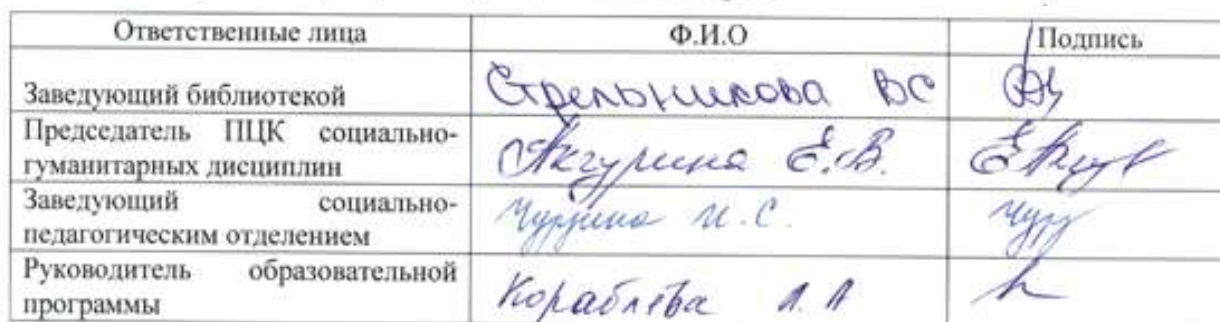 Ответственные лица Ф.И.О Подпись
Заведующий библиотекой Стрельникова ВС
Председатель ПЦК социально-
гуманитарных дисциплин Акчурина Е.В.
Заведующий социально-
педагогическим отделением И.С.
Руководитель образовательной
программы Кораблева Л.Л